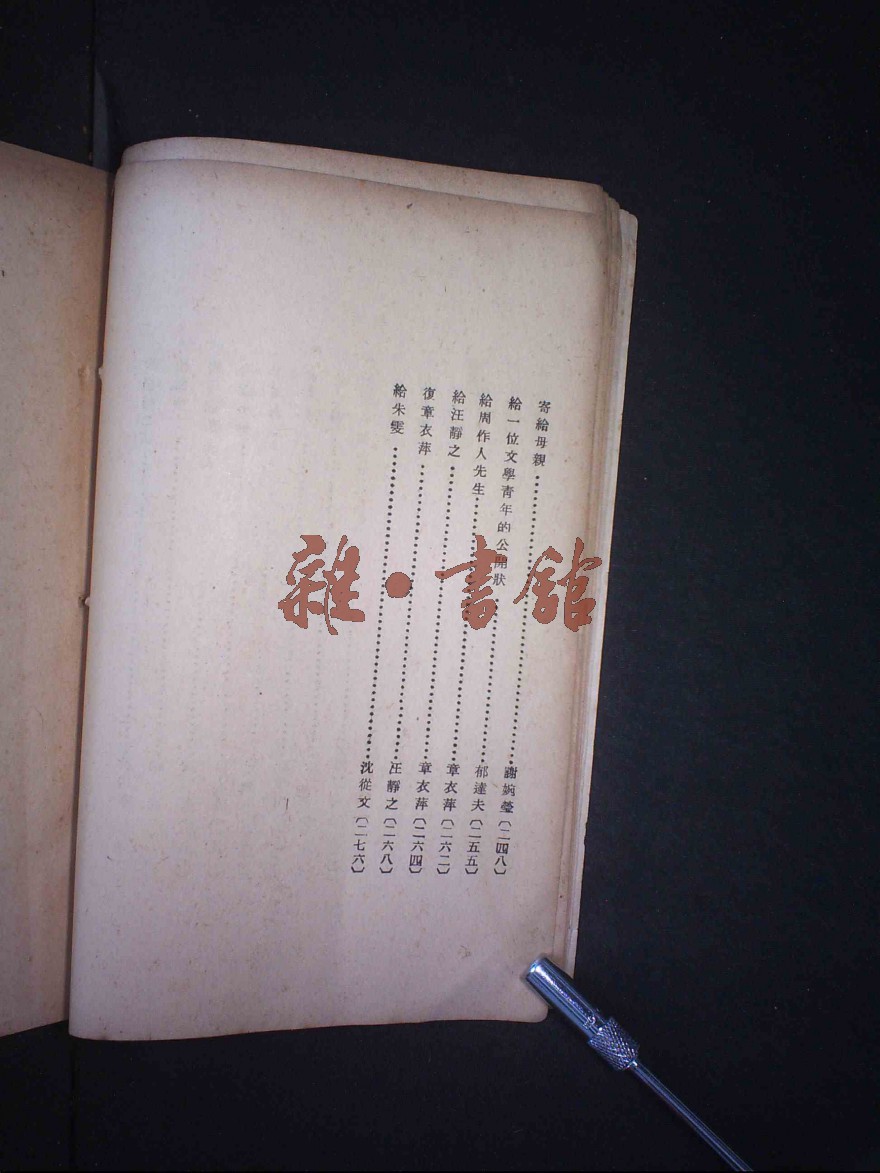 寄給母親……謝婉瑩〔二四八〕
給一位文學青年的公開狀……郁達夫〔二五五〕
給周作人先生……章衣萍〔二六二〕
給汪靜之……章衣萍〔二六四〕
復章衣萍……汪靜之〔二六八〕
給朱雯……沈從文〔二七六〕
雜·書館